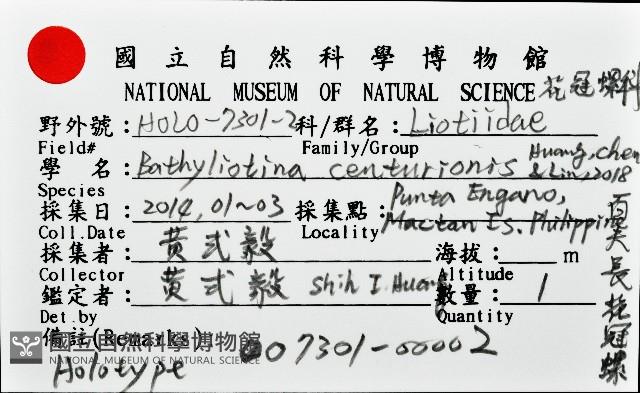 國立自然科學博物館
NATIONAL MUSEUM OF NATURAL SCIENCE 花冠螺科
野外號：HOLO-7301-2 科/群名：Liotiidae
Field# Family/Group
學 名：Bathyliotina centurionis Huang, chen & Lin, 2018
Species
採集日：2014, 01~03 採集點：Punta Engano, Mactan Is. Philippin
Coll.Date Locality
採集者：黃弍毅 海拔：m
Collector Altitude
鑑定者：黃弍毅 Shih I Huang 數量：1
Det.by Quantity
備註(Remarks)
國立自然科學博物館
NATIONAL MUSEUM OF NATURAL SCIENCE
Holotype 007301-00002
百夫長花冠螺